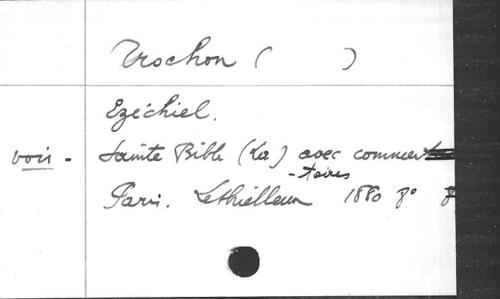 Trochon ( )
Ezéchiel.
voir - Sainte Bible (La) avec commen
-taires
Paris. Lethielleux 1880 8°